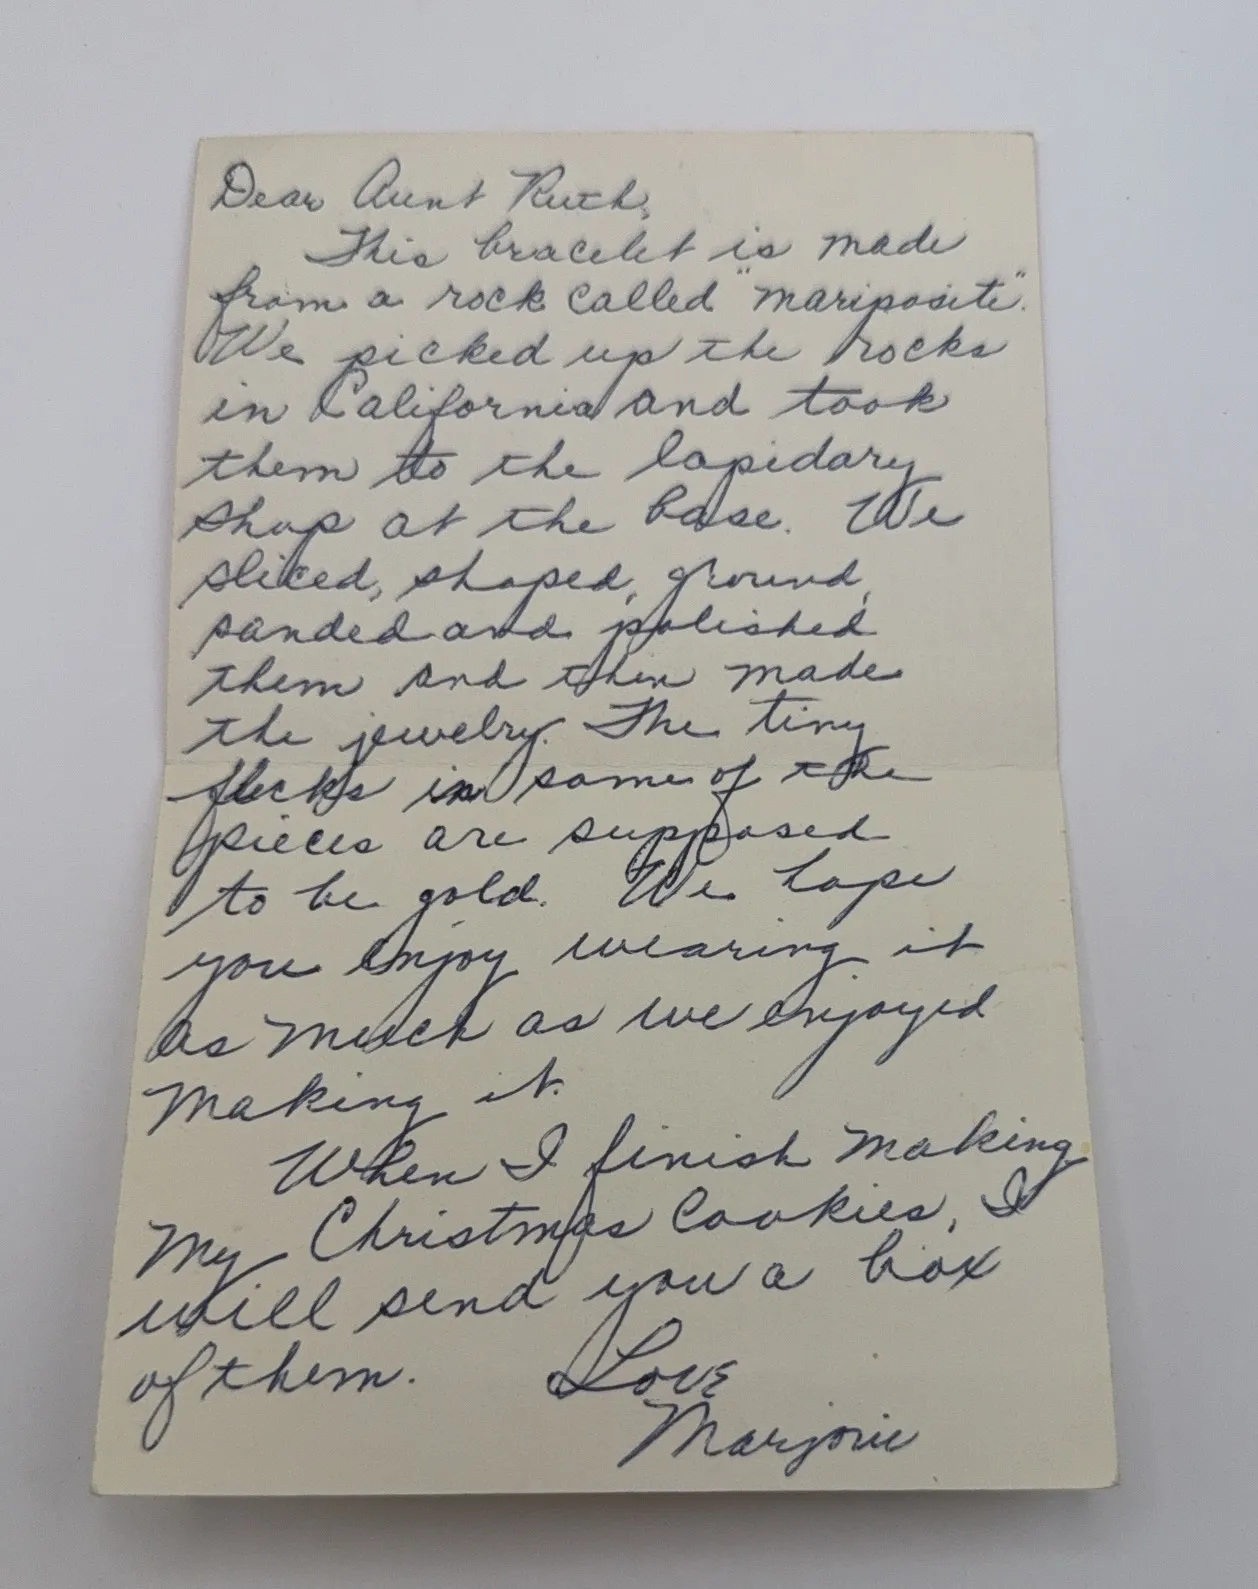 Dear Aunt Ruth,
This bracelet is made
from a rock called "mariposite".
We picked up the rocks
in California and took
them to the lapidary
shop at the base. We
sliced, shaped, ground,
sanded and polished
them and then made
the jewelry. The tiny
flecks in some of the
pieces are supposed
to be gold. We hope
you enjoy wearing it
as much as we enjoyed
making it.
When I finish making
my Christmas cookies, I
will send you a box
of them. Love
Marjorie